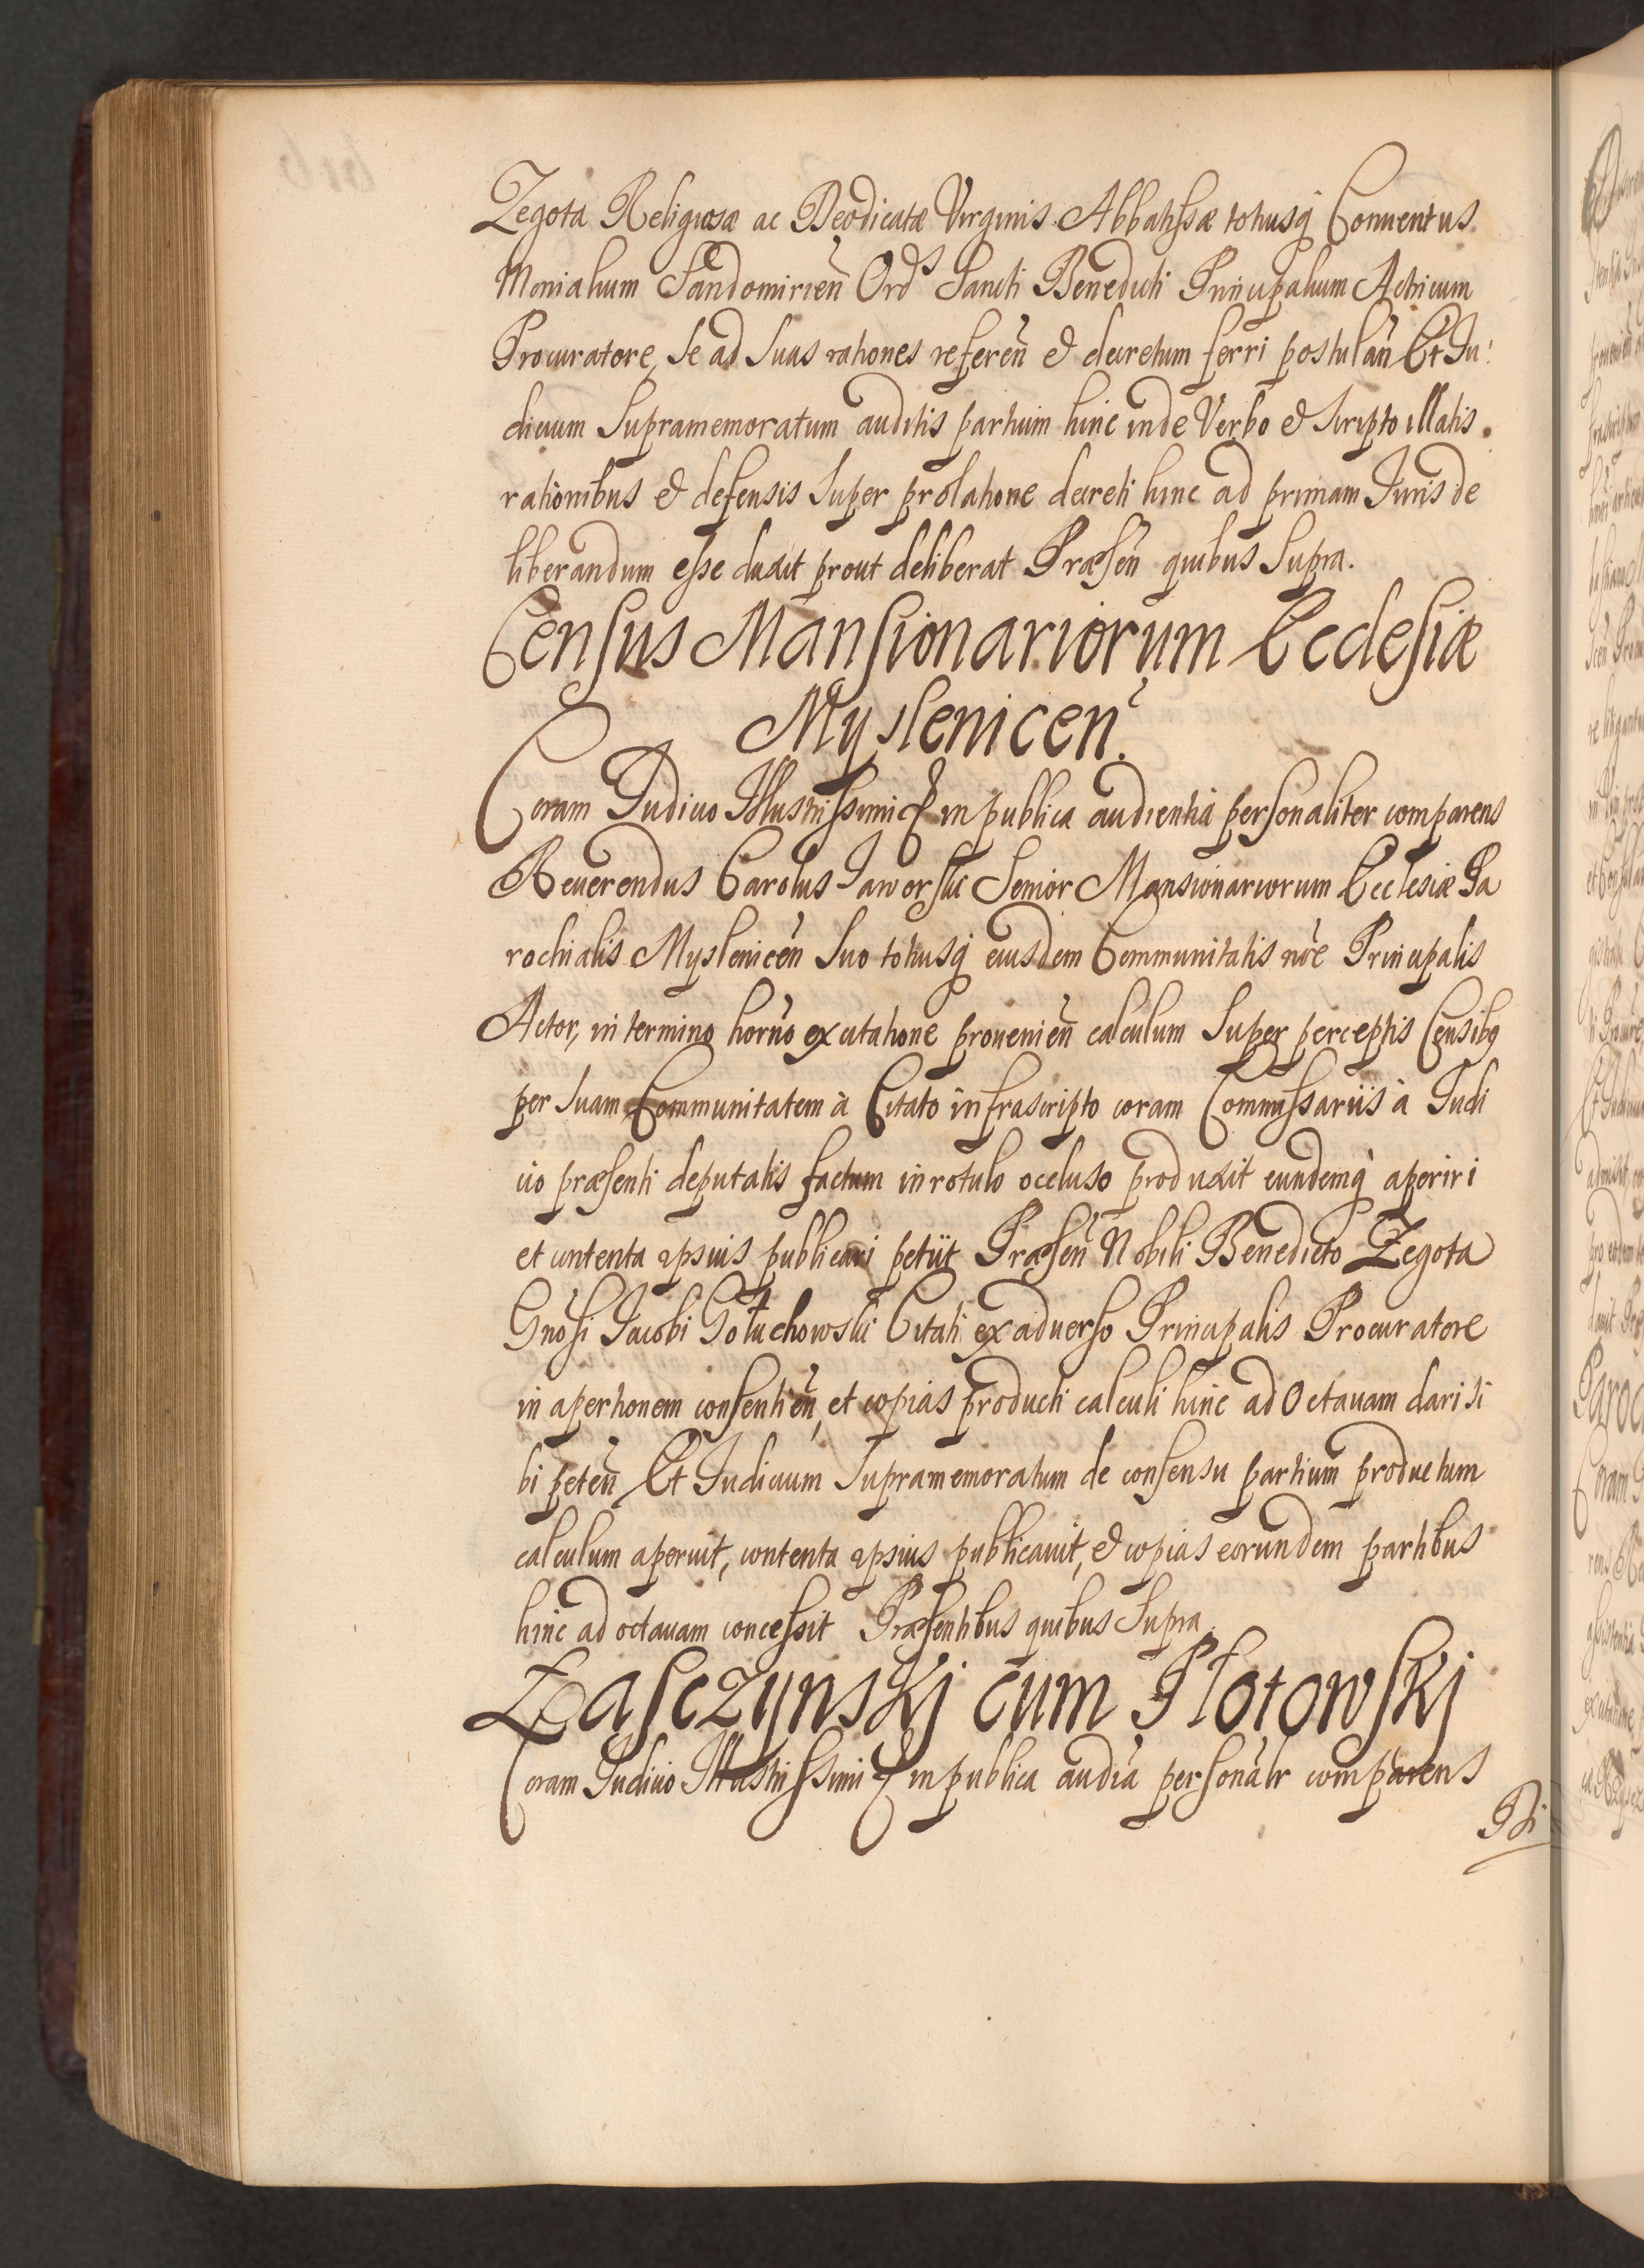 Zegota Religiosæ ac Deodicatæ Virginis Abbatissæ totiusq́ Conuentus
Monialium Sandomirien̄ Ordˢ Sancti Benedicti Principalium Actricum
Procuratore, se ad suas rationes referen̄ et decretum ferri postulan̄ Et Iu:
dicium Supramemoratum auditis partium hinc inde Verbo et Scripto illatis
rationibus et defensis super prolatione decreti hinc ad primam Iuris de
liberandum esse duxit prout deliberat Præsen̄ quibus Supra.
Census Mansionariorum Ecclesiæ
Myslenicen̄.
Coram Iudicio Illustrissimi in publica audientia personaliter comparens
Reuerendus Carolus Jaworski Senior Mansionariorum Ecclesiæ Pa
rochialis Myslenicen̄ suo totiusq́ eiusdem Communitatis nōe Principalis
Actor, in termino horn̄o ex citatione prouenien̄ calculum super perceptis Censibq
per suam Communitatem à Citato infrascripto coram Commissariis à Iudi
cio præsenti deputatis factum in rotulo occluso produxit eundemq́ aperiri
et contenta ipsius publicari petiit Præsen̄ Nobili Benedicto Zegota
Gnōsi Jacobi Gołuchowski Citati ex aduerso Principalis Procuratore
in apertionem consentien̄, et copias producti calculi hinc ad Octauam dari si
bi peten̄ Et Iudicium Supramemoratum de consensu partium productum
calculum aperuit, contenta ipsius publicauit, et copias eorundem partibus
hinc ad octauam concessit Præsentibus quibus Supra.
Łasczynskj cum Płotowskj
Coram Iudicio Illustrissimi in publica audīa personālr comparens